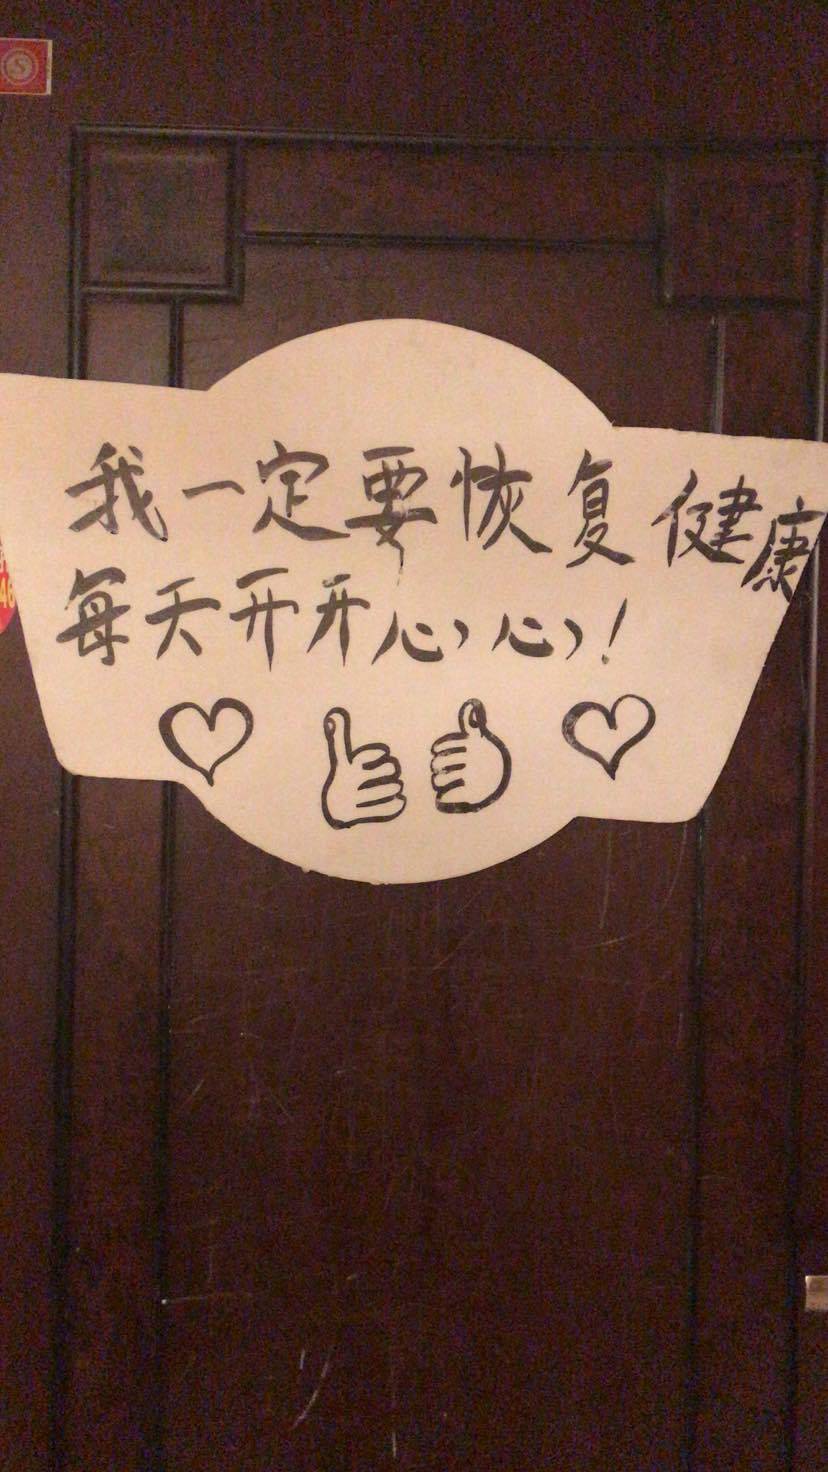 我一定要恢复健康
每天开开心心!
46